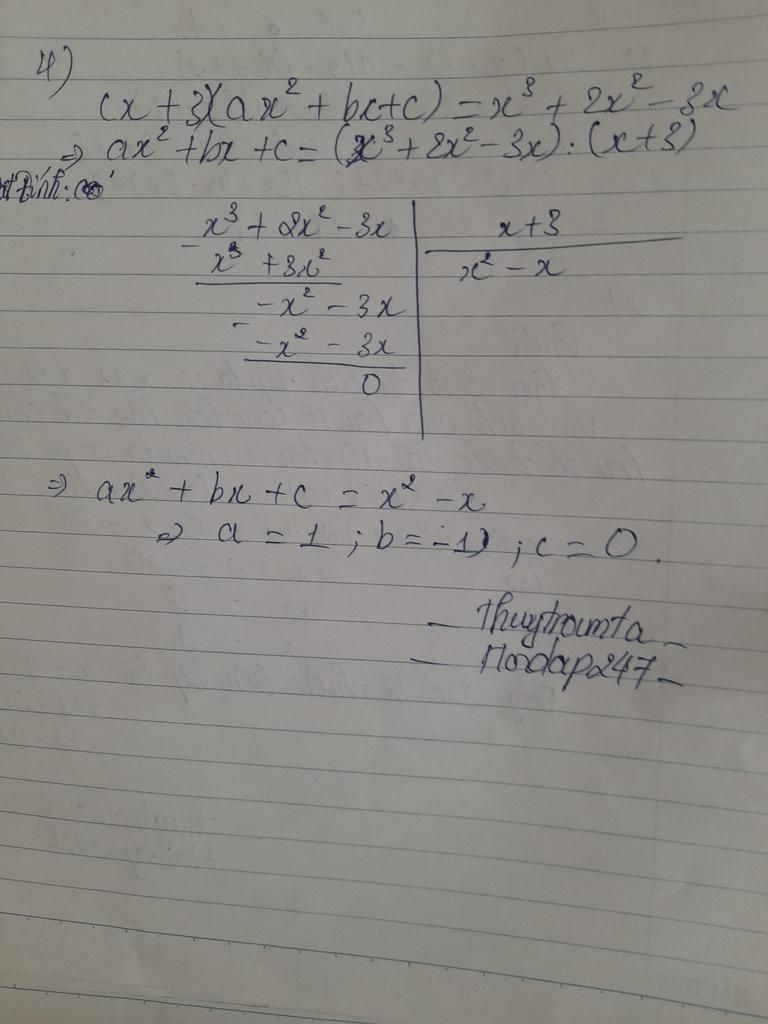 4)
(x + 3)(ax² + bx + c) = x³ + 2x² - 3x
⇒ ax² + bx + c = (x³ + 2x² - 3x) : (x + 3)
Đặt tính: có
x³ + 2x² - 3x | x + 3
- x³ + 3x² | x² - x
-x² - 3x
- -x² - 3x
0
⇒ ax² + bx + c = x² - x
⇒ a = 1 ; b = -1 ; c = 0 .
- Thuytramta -
- Hoidap247 -